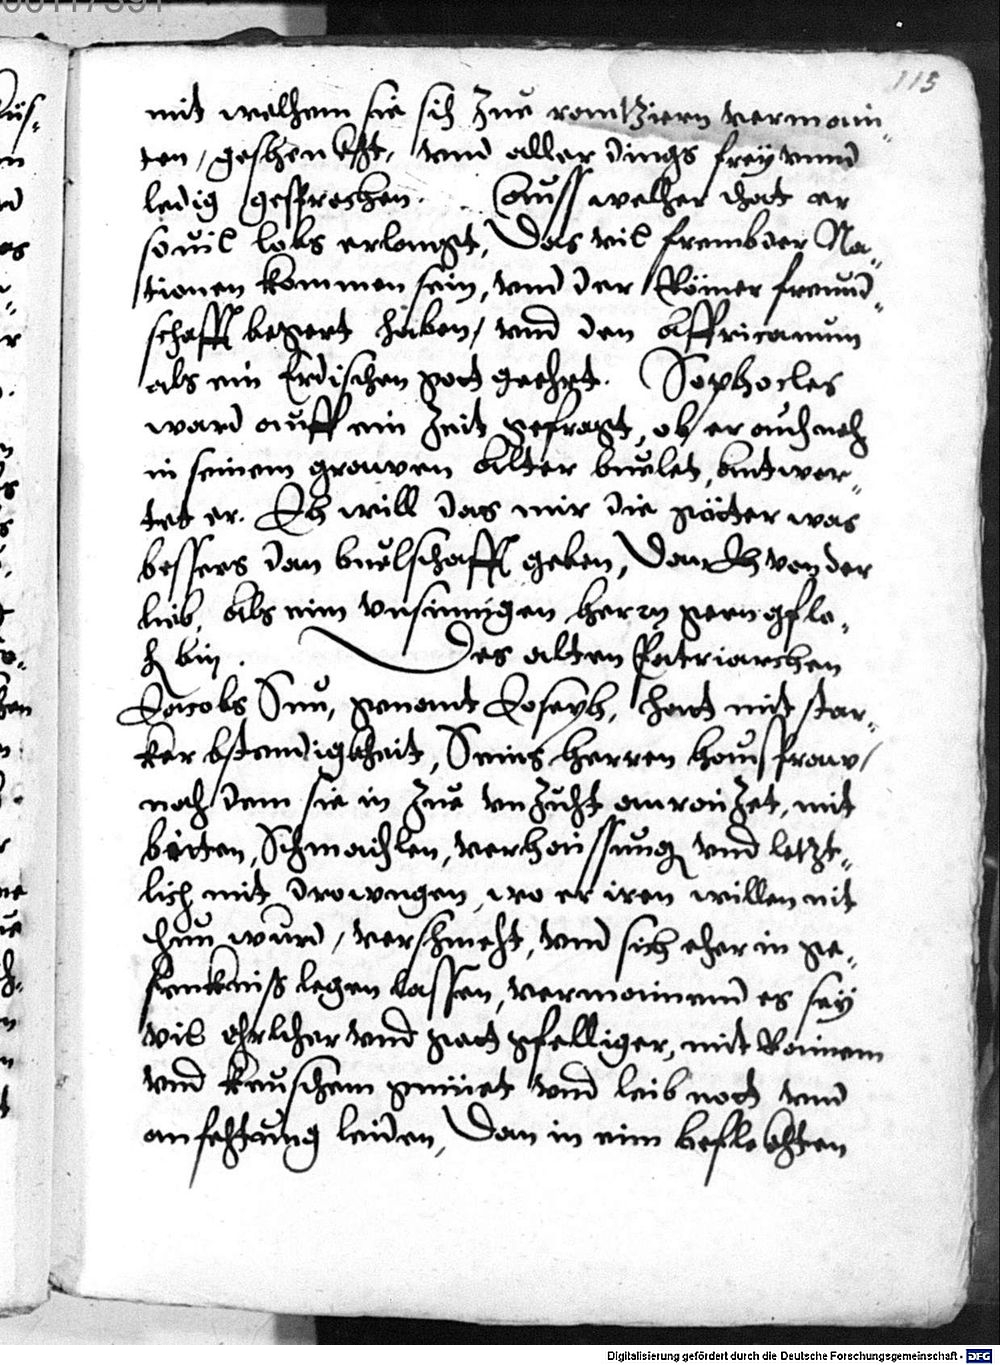 115
mit welhem sie sich zuͦ rantzionn vermain-
ten, geschenkht, vnnd aller dings frey vnnd
ledig gesprochen. Auss welher that er
souil lobs erlangt, Das vil frembder Na-
tionen kommen sein, vnnd der Römer freund-
schafft begert haben, vnnd den Affricanum
als ein Erdischen gott geehrt. Sophocles
ward auff ein Zeit gefragt, ob er auch noch
in seinem grauwen Alter buͦlet, Antwor-
tet er. Ich will das mir die götter was
bessers dan buͦlschafft geben, Dan Ich von der
lieb, als eim vnsinnigen herrn gern gflo-
h bin. Des alten Patriarchen
Jacobs Sun, genant Joseph, hatt mit star-
ker bstendigkheit, Seins herren hausfrauw,
nach dem sie in zuͦ vnzucht anraizet, mit
bitten, Schmaichlen, verhaissung vnd letzt-
lich mit drowngen, wo er iren willen nit
thun wurd, verschmeht, vnd sich eher in ge-
fenkhniss legen lassen, vermainend es sey
vil ehrlicher vnd gott gfelliger, mit Rainem
vnd keuschem gmüet vnd leib nott vnd
anfechtung leiden, Dan in eim beflekhten
Digitalisierung gefördert durch die Deutsche Forschungsgemeinschaft - DFG